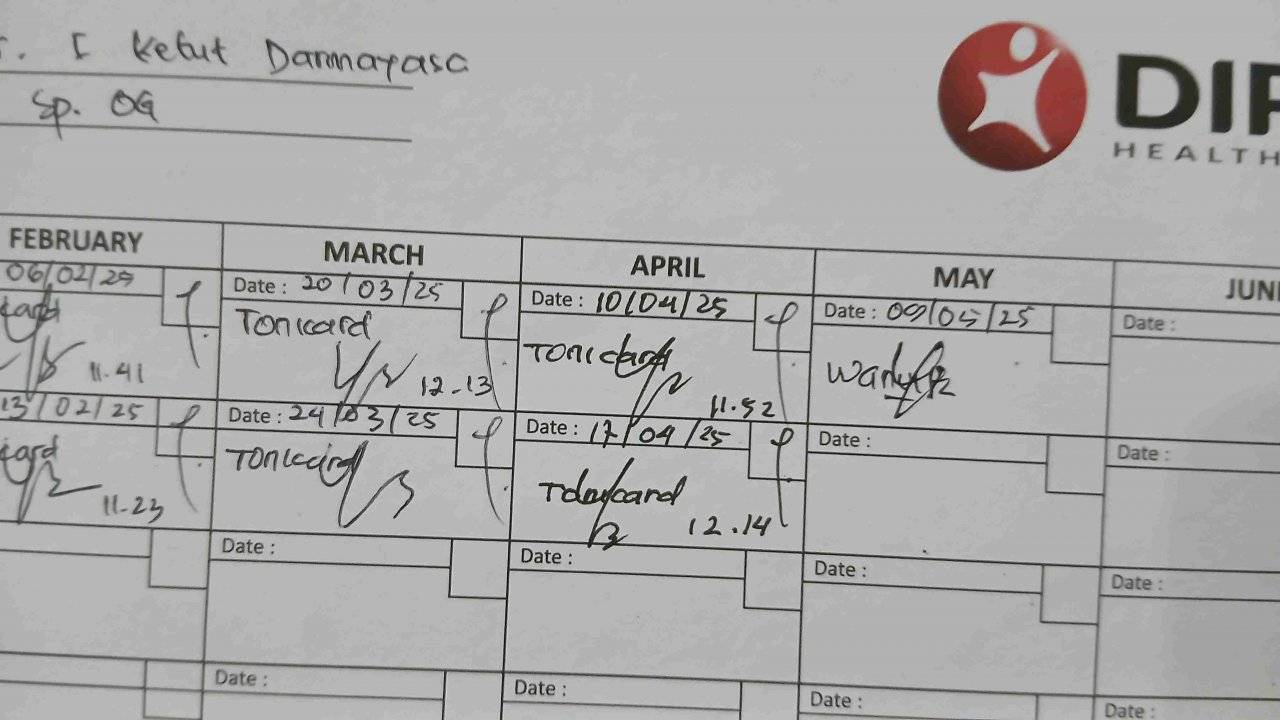 I Ketut Darmayasa
Sp. OG
DIP
HEALTH
FEBRUARY MARCH APRIL MAY JUN
06/02/25 Date : 20/03/25 Date : 10/04/25 Date : 09/05/25 Date :
card Tonicard Tonicard
11.41 12-13 11.52
13/02/25 Date : 24/03/25 Date : 17/04/25 Date : Date :
card Tonicard
11-23 12.14
Date : Date : Date : Date :
Date : Date : Date : Date :